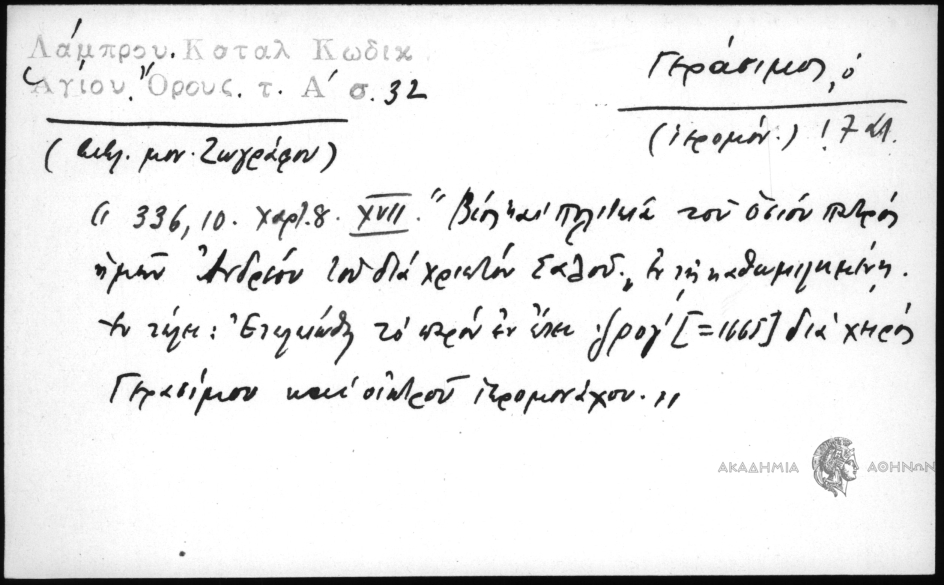 Λάμπρου. Καταλ Κωδικ
Ἁγίου Ὄρους. τ. Α´ σ. 32
(βιβλ. μον. Ζωγράφου)
Γεράσιμος, ὁ
(ἱερομόν.)
" 336, 10. χαρτ. 8. XVII. " Βίος καὶ πολιτεία τοῦ ὁσίου πατρός
ἡμῶν Ἀνδρέου τοῦ διά Χριστόν Σαλοῦ „ ἐν τῇ καθωμιλημένῃ.
ἐν τέλει: Ἐτελειώθη τό παρόν ἐν ἔτει ͵ζρογ´ [=1665] διά χειρός
Γερασίμου καί οἰκτροῦ ἱερομονάχου. "
ΑΚΑΔΗΜΙΑ ΑΘΗΝΩΝ